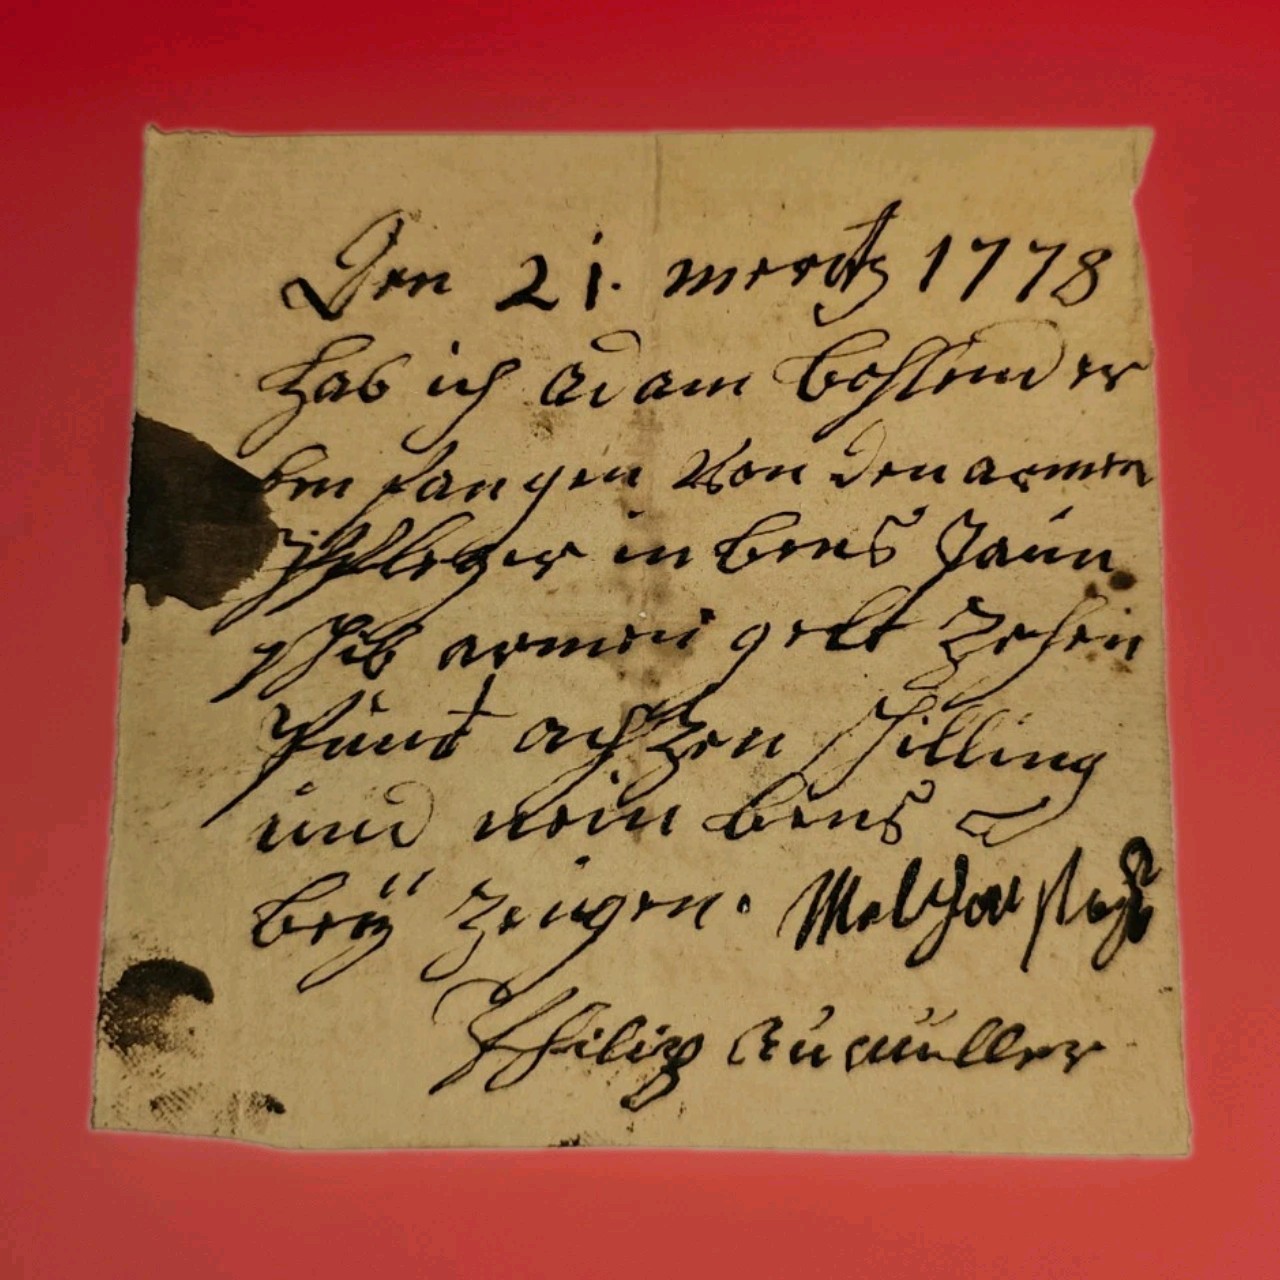 Den 21. mertz 1778
Hab ich adam bohlender
bmfangen Von den armen
Pfleger in bens Jaün
armen gelt Zehen
Pfünt achzen schilling
und nein bens
beÿ Zeügen. Melchor
Philip